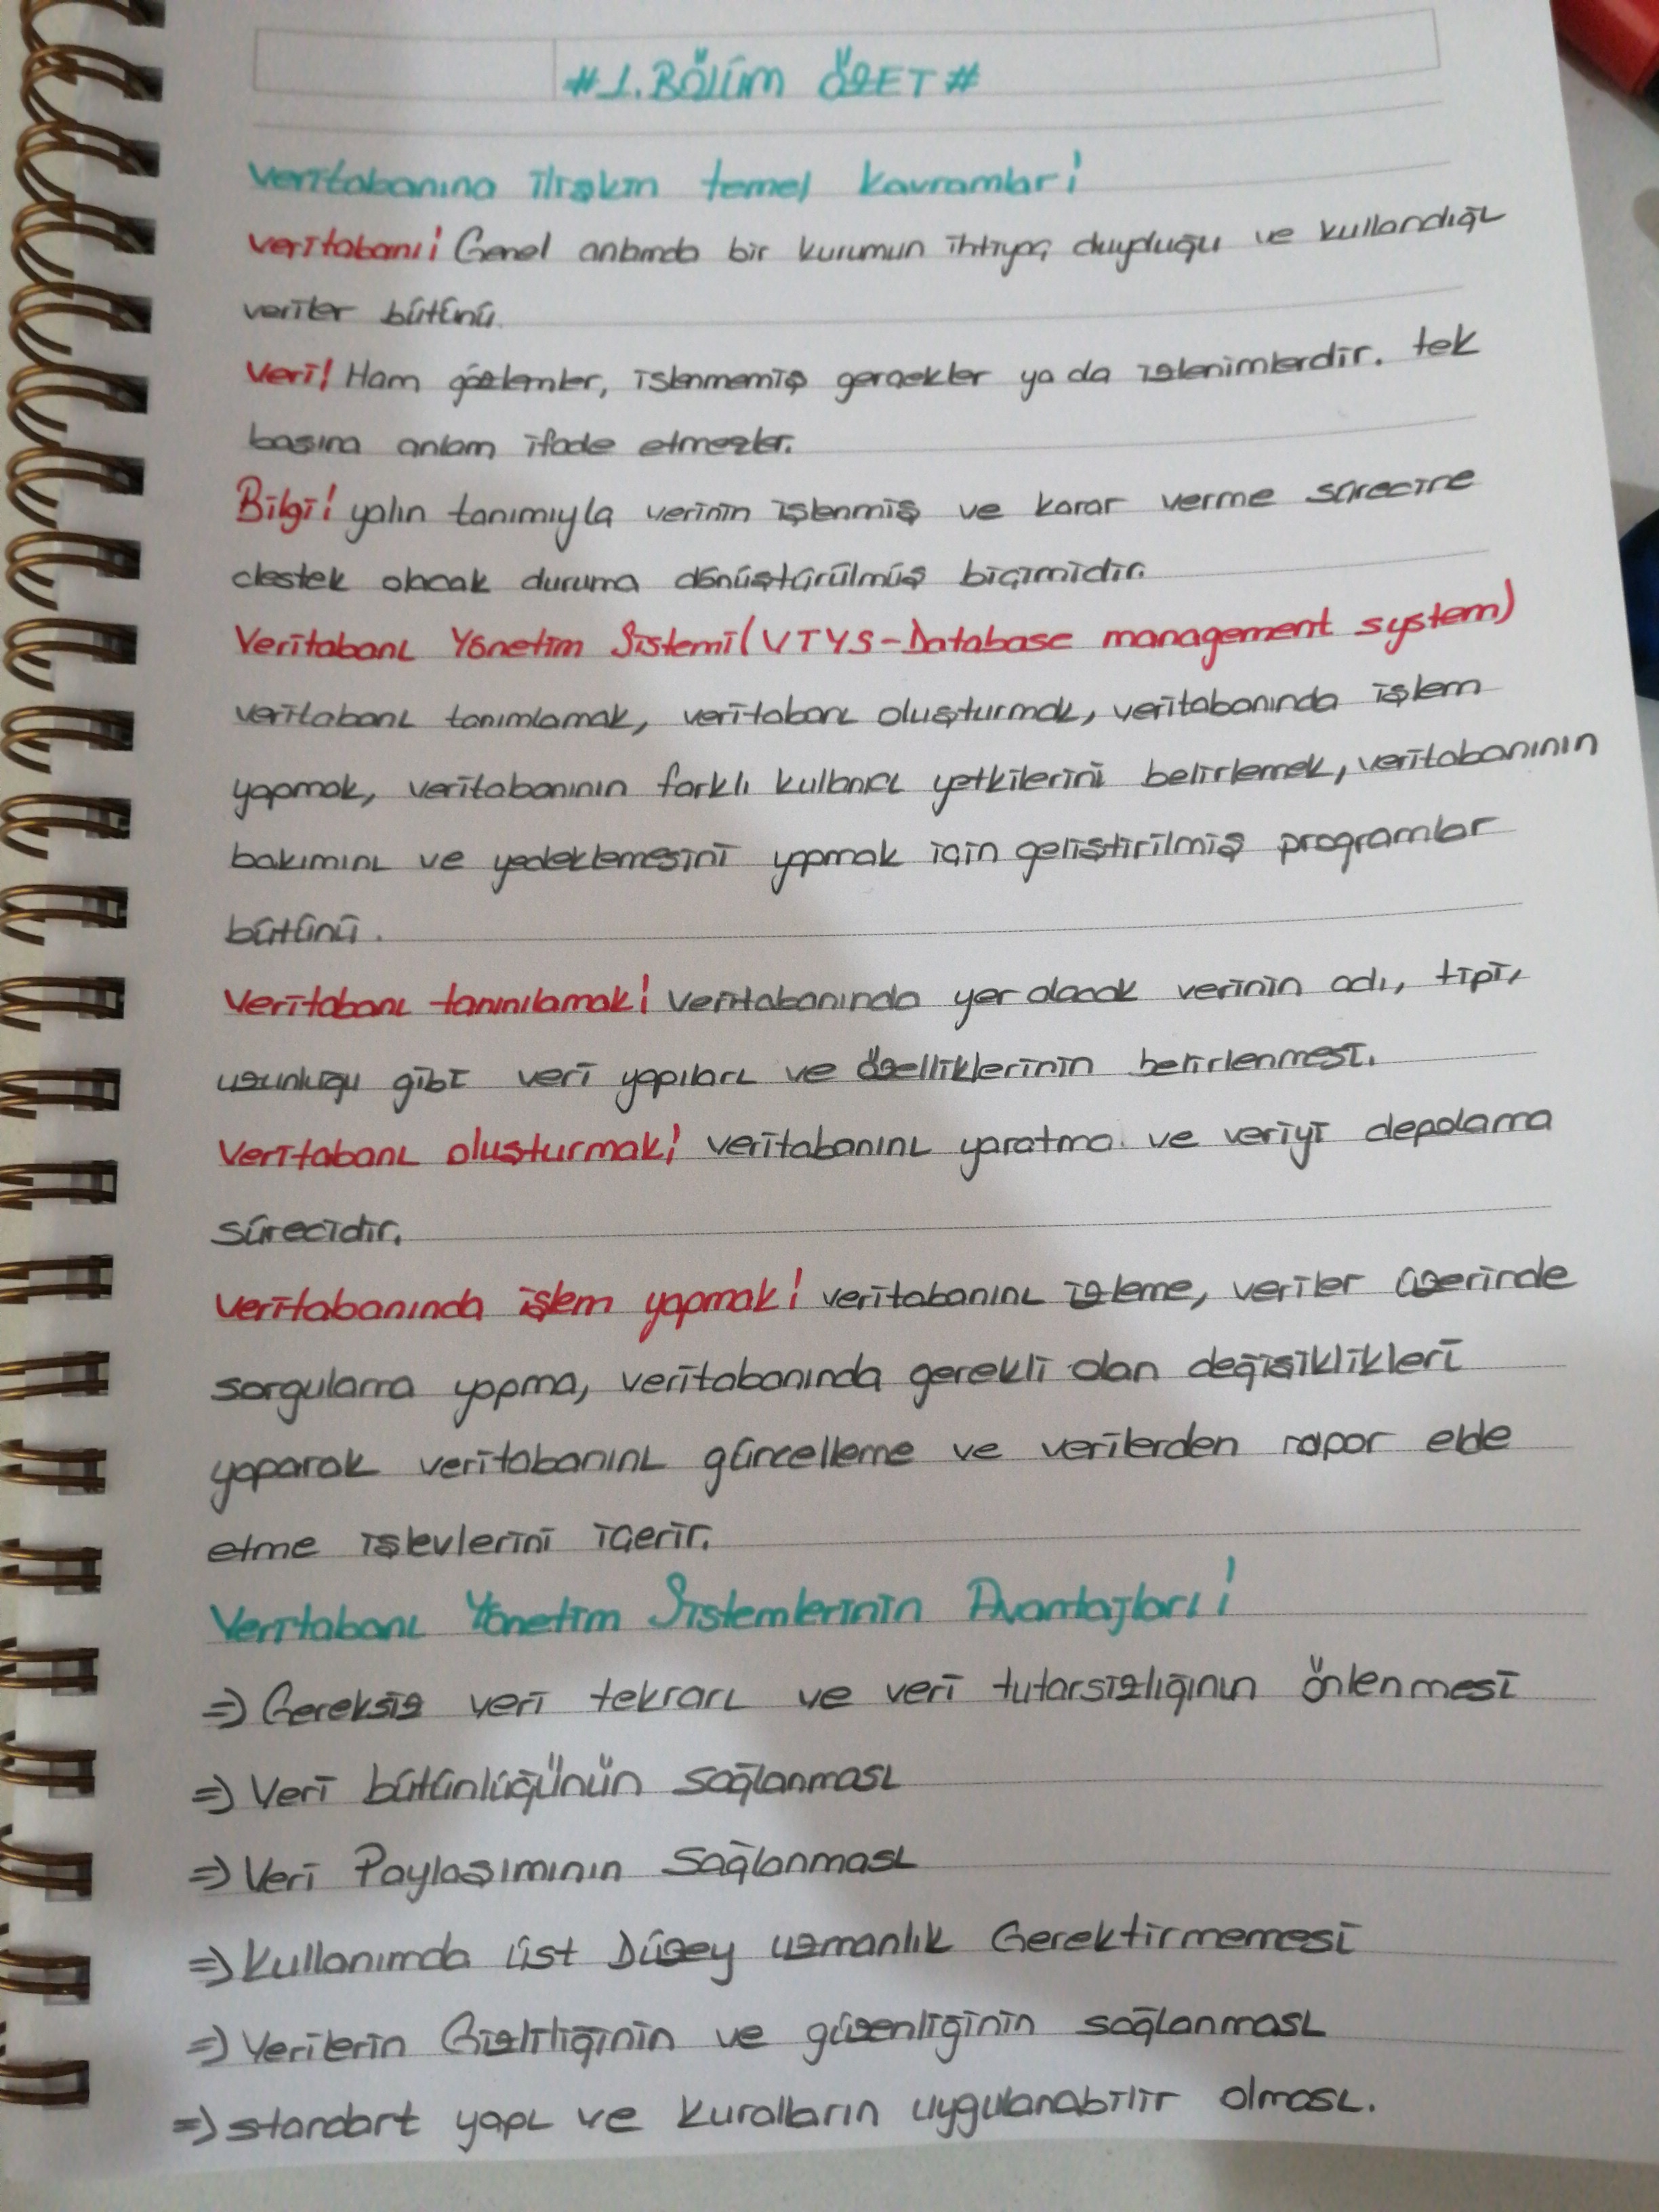 #1. BÖLÜM ÖZET#
Veritabanına ilişkin temel kavramlar!
Veritabanı! Genel anlamda bir kurumun ihtiyaç duyduğu ve kullandığı
veriler bütünü.
Veri! Ham gözlemler, işlenmemiş gerçekler ya da izlenimlerdir. tek
başına anlam ifade etmezler.
Bilgi! yalın tanımıyla verinin işlenmiş ve karar verme sürecine
destek olacak duruma dönüştürülmüş biçimidir.
Veritabanı Yönetim Sistemi(VTYS-Database management system)
veritabanı tanımlamak, veritabanı oluşturmak, veritabanında işlem
yapmak, veritabanının farklı kullanıcı yetkilerini belirlemek, veritabanının
bakımını ve yedeklemesini yapmak için geliştirilmiş programlar
bütünü.
Veritabanı tanımlamak! Veritabanında yer alacak verinin adı, tipi,
uzunluğu gibi veri yapıları ve özelliklerinin belirlenmesi.
Veritabanı oluşturmak! veritabanını yaratma ve veriyi depolama
sürecidir.
Veritabanında işlem yapmak! veritabanını izleme, veriler üzerinde
sorgulama yapma, veritabanında gerekli olan değişiklikleri
yaparak veritabanını güncelleme ve verilerden rapor elde
etme işlevlerini içerir.
Veritabanı Yönetim Sistemlerinin Avantajları!
⇒ Gereksiz veri tekrarı ve veri tutarsızlığının önlenmesi
⇒ Veri bütünlüğünün sağlanması
⇒ Veri Paylaşımının Sağlanması
⇒ Kullanımda üst Düzey uzmanlık Gerektirmemesi
⇒ Verilerin Gizliliğinin ve güvenliğinin sağlanması
⇒ standart yapı ve kuralların uygulanabilir olması.